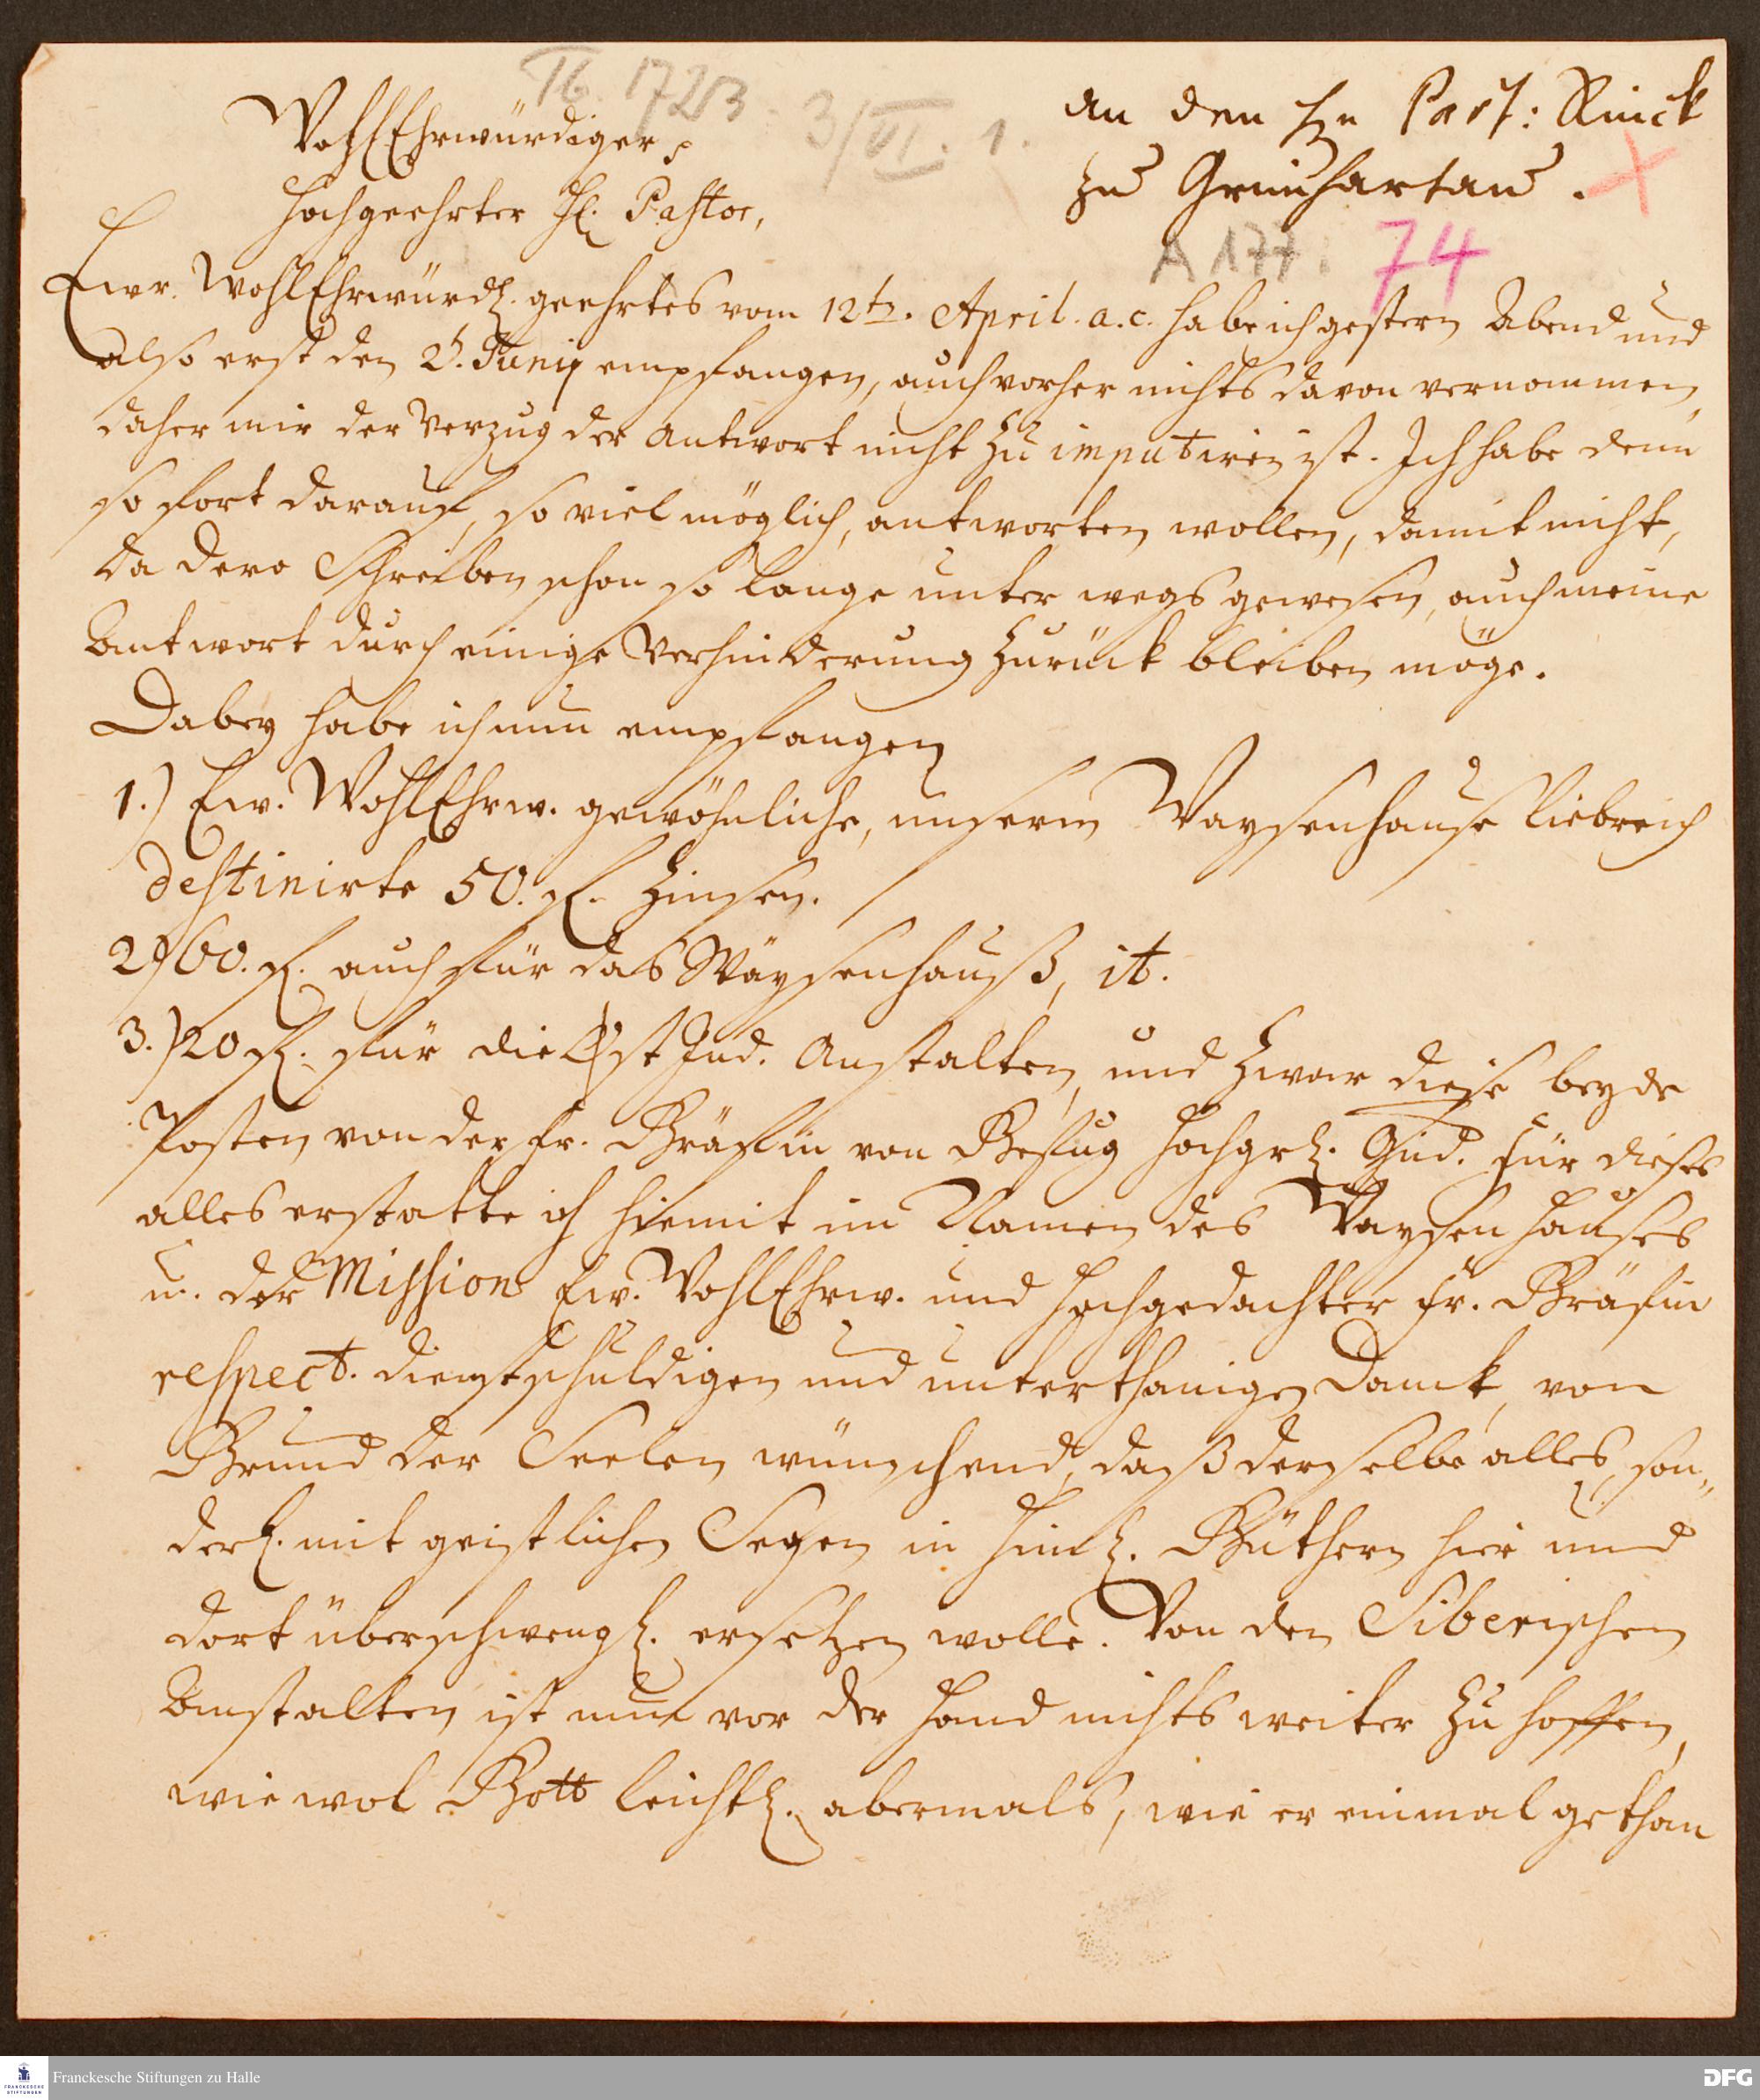 Tb. 1723. 3/VI. 1.
an den Hn Past: Rinck
zu Grünhartau.
A 177: 74
WohlEhrwürdiger
Hochgeehrter H. Pastor,
Ewr. WohlEhrwürdl. geehrtes vom 12tn. April. a.c. habe ich gestern Abend und
also erst den 2t. Junij empfangen, auch vorher nichts davon vernommen,
daher mir der Verzug der Antwort nicht zu imputiren ist. Ich habe denn
so fort darauf, so viel möglich, antworten wollen, damit nicht,
da dero Schreiben schon so lange unter wegs gewesen, auch meine
Antwort durch einige Verhinderung zurück bleiben möge.
Dabey habe ich nun empfangen
1.) Ew. WohlEhrw. gewöhnliche, unserm Waysenhause liebreich
destinirte 50. fl. Zinsen.
2.) 60. fl. auch für das Wäysenhauß, it.
3.) 20 fl. für die Ost Ind. Anstalten, und zwar diese beyde
Posten von der Fr. Gräfin von Hochgrl. Gnd. Für dieses
alles erstatte ich hiemit im Namen des Waysenhauses
u. der Mission Ew. WohlEhrw. und Hochgedachter Fr. Gräfin
respect. dienstschuldigen und unterthänigen Danck, von
Grund der Seelen wünschend, daß derselbe alles, son„
derl. mit geistlichen Segen in himl. Güthern hier und
dort überschwengl. ersetzen wolle. Von den Siberischen
Anstalten ist nun vor der Hand nichts weiter zu hoffen,
wie wol Gott leichtl. abermals, wie er einmal gethan
Franckesche Stiftungen zu Halle
DFG